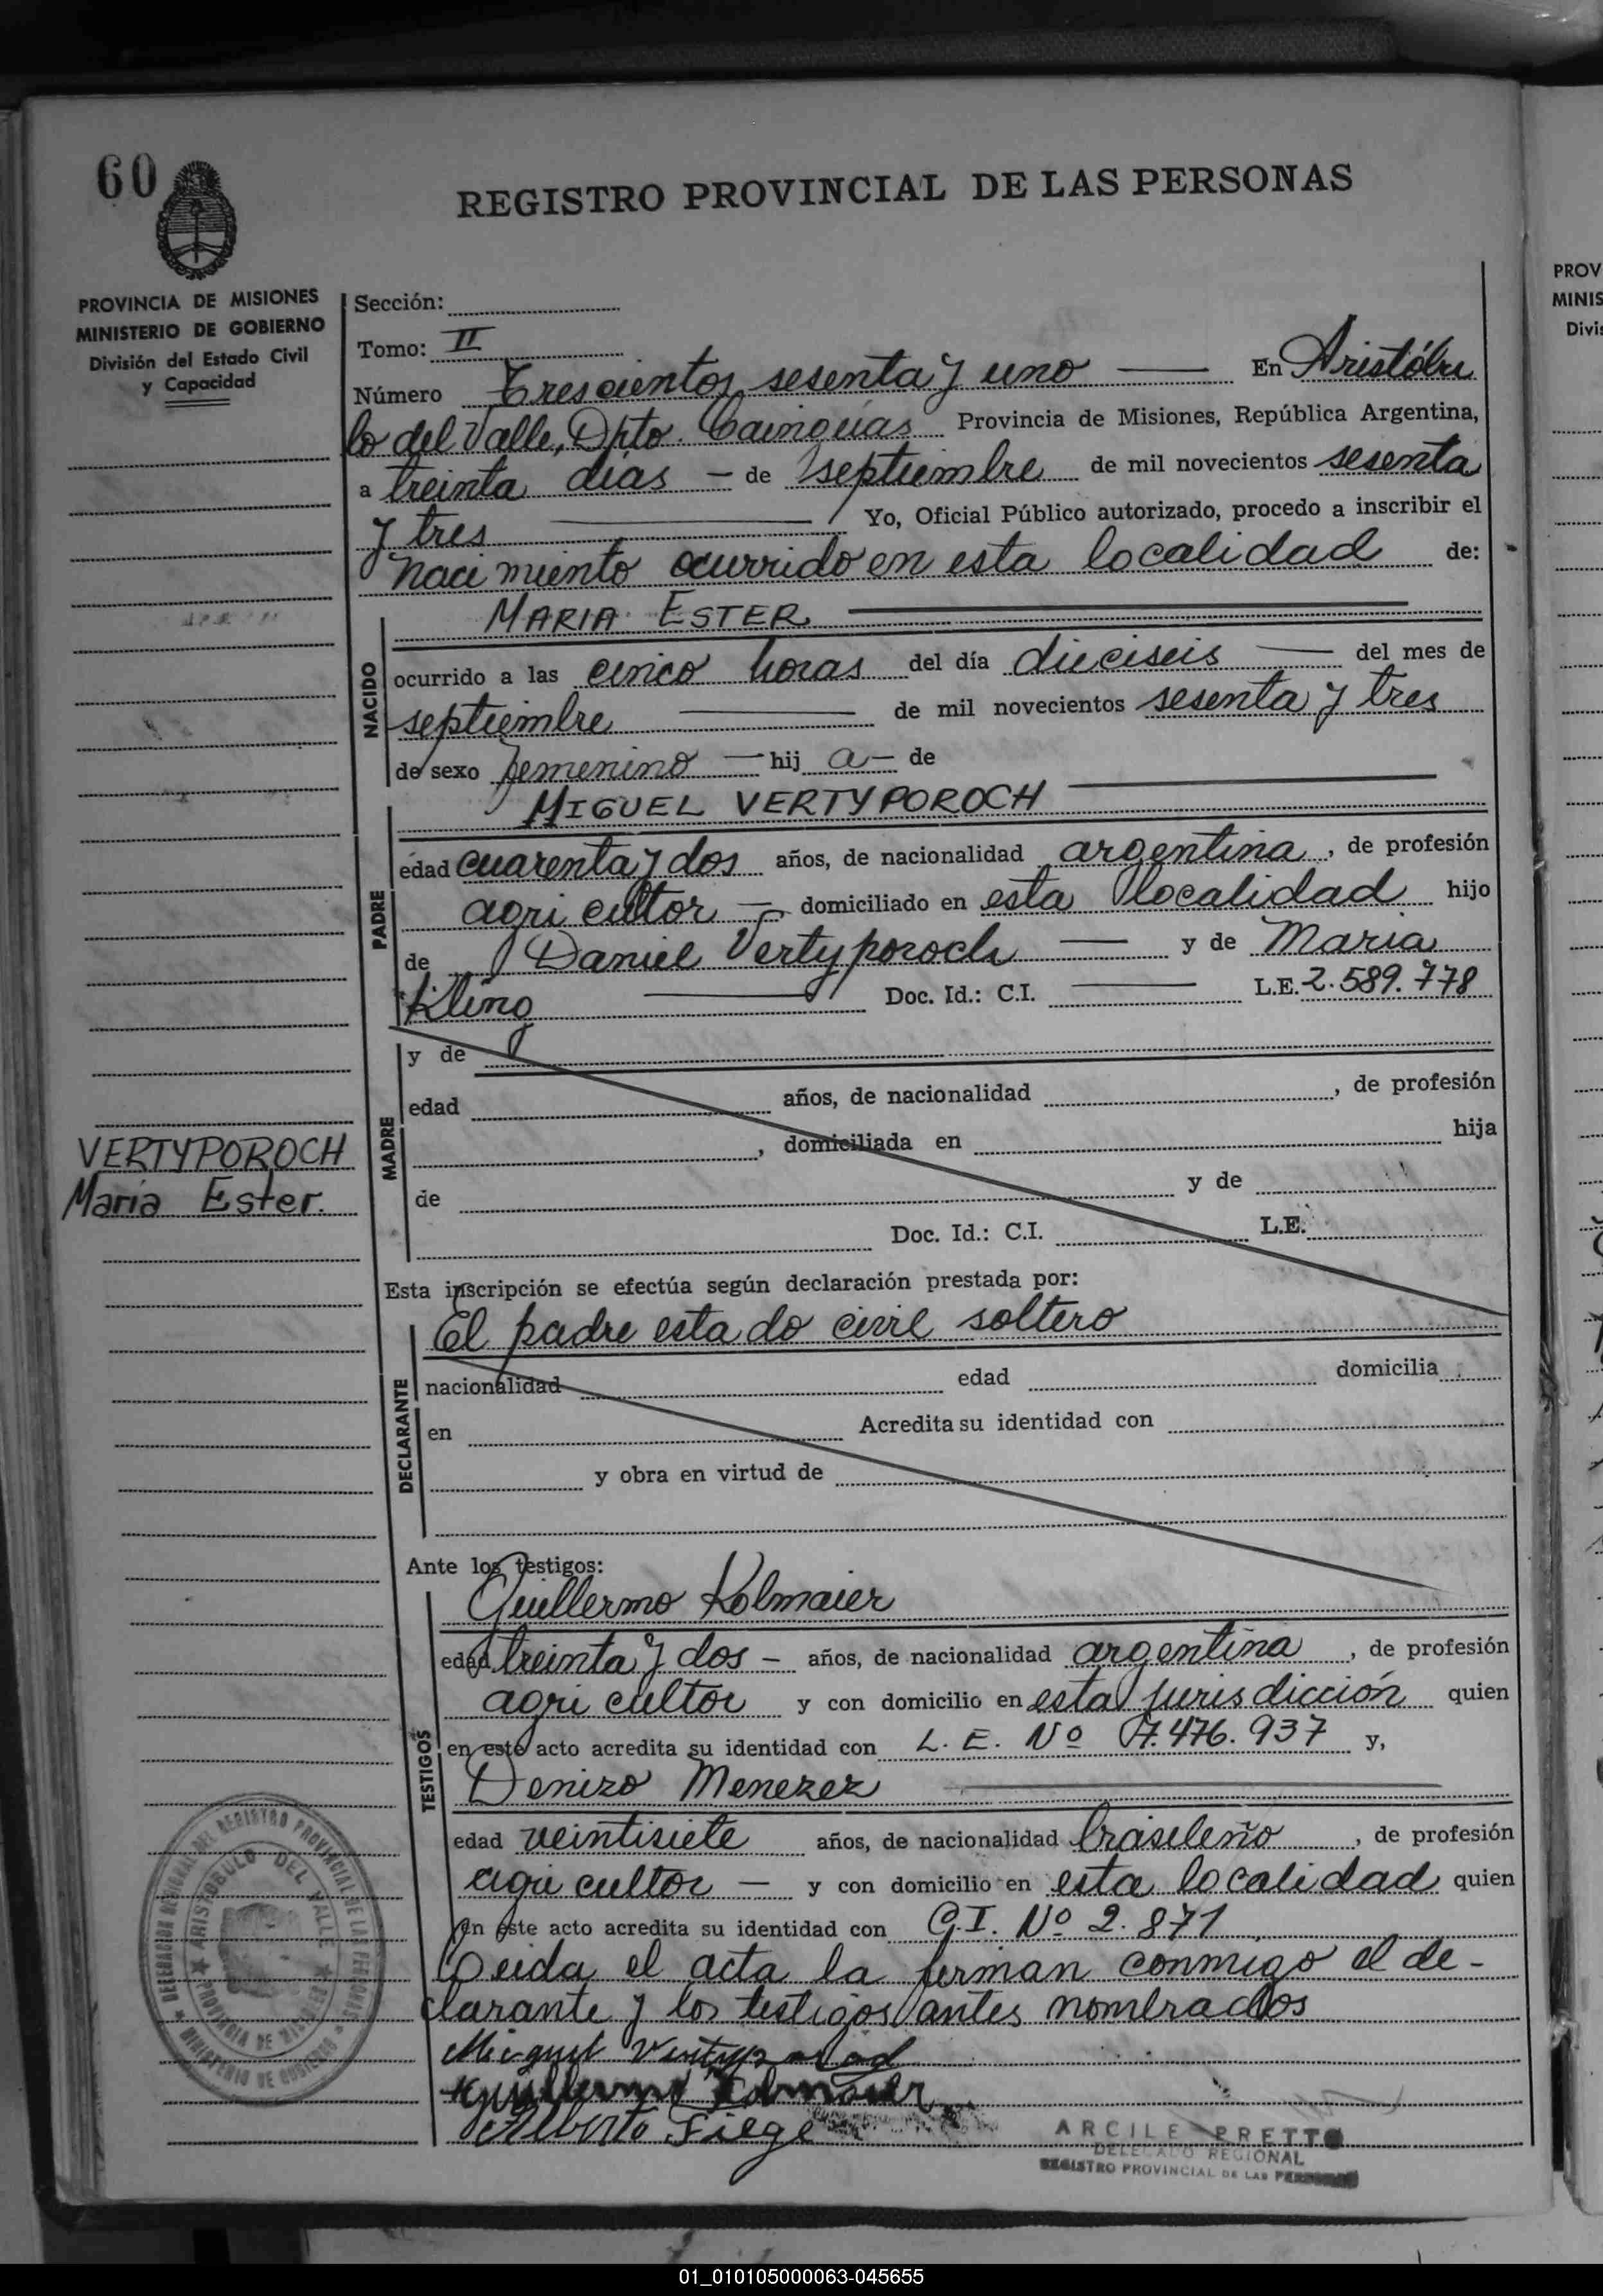 60
REGISTRO PROVINCIAL DE LAS PERSONAS
PROVINCIA DE MISIONES
MINISTERIO DE GOBIERNO
División del Estado Civil
y Capacidad
Sección:
Tomo: II
Número Trescientos sesenta y uno — En Aristóbu
lo del Valle, Dpto. Cainguás Provincia de Misiones, República Argentina,
a treinta días — de septiembre de mil novecientos sesenta
y tres — Yo, Oficial Público autorizado, procedo a inscribir el
nacimiento ocurrido en esta localidad de:
NACIDO
MARIA ESTER
ocurrido a las cinco horas del día dieciseis — del mes de
septiembre — de mil novecientos sesenta y tres
de sexo femenino — hij a — de
PADRE
MIGUEL VERTYPOROCH
edad cuarenta y dos años, de nacionalidad argentina, de profesión
agricultor — domiciliado en esta localidad hijo
de Daniel Vertyporoch — y de Maria
Kling — Doc. Id.: C.I. — L.E. 2.589.778
MADRE
y de
edad años, de nacionalidad , de profesión
, domiciliada en hija
de y de
Doc. Id.: C.I. L.E.
VERTYPOROCH
Maria Ester.
Esta inscripción se efectúa según declaración prestada por:
DECLARANTE
El padre estado civil soltero
nacionalidad edad domicilia
en Acredita su identidad con
y obra en virtud de
Ante los testigos:
TESTIGOS
Guillermo Kolmaier
edad treinta y dos — años, de nacionalidad argentina, de profesión
agricultor y con domicilio en esta jurisdicción quien
en este acto acredita su identidad con L. E. Nº 7.476.937 y,
Denizo Menezez
edad veintisiete años, de nacionalidad brasileño, de profesión
agricultor — y con domicilio en esta localidad quien
en este acto acredita su identidad con C.I. Nº 2.871
Leida el acta la firman conmigo el de-
clarante y los testigos antes nombrados
Miguel
Guillermo Kolmaier
Alberto Fiege
ARCILE PRETTO
DELEGADO REGIONAL
REGISTRO PROVINCIAL DE LAS PERSONAS
DELEGACION REGIONAL DEL REGISTRO PROVINCIAL DE LAS PERSONAS
MINISTERIO DE GOBIERNO
ARISTOBULO DEL VALLE
PROVINCIA DE MISIONES
PROV
MINIS
Divi
01_010105000063-045655